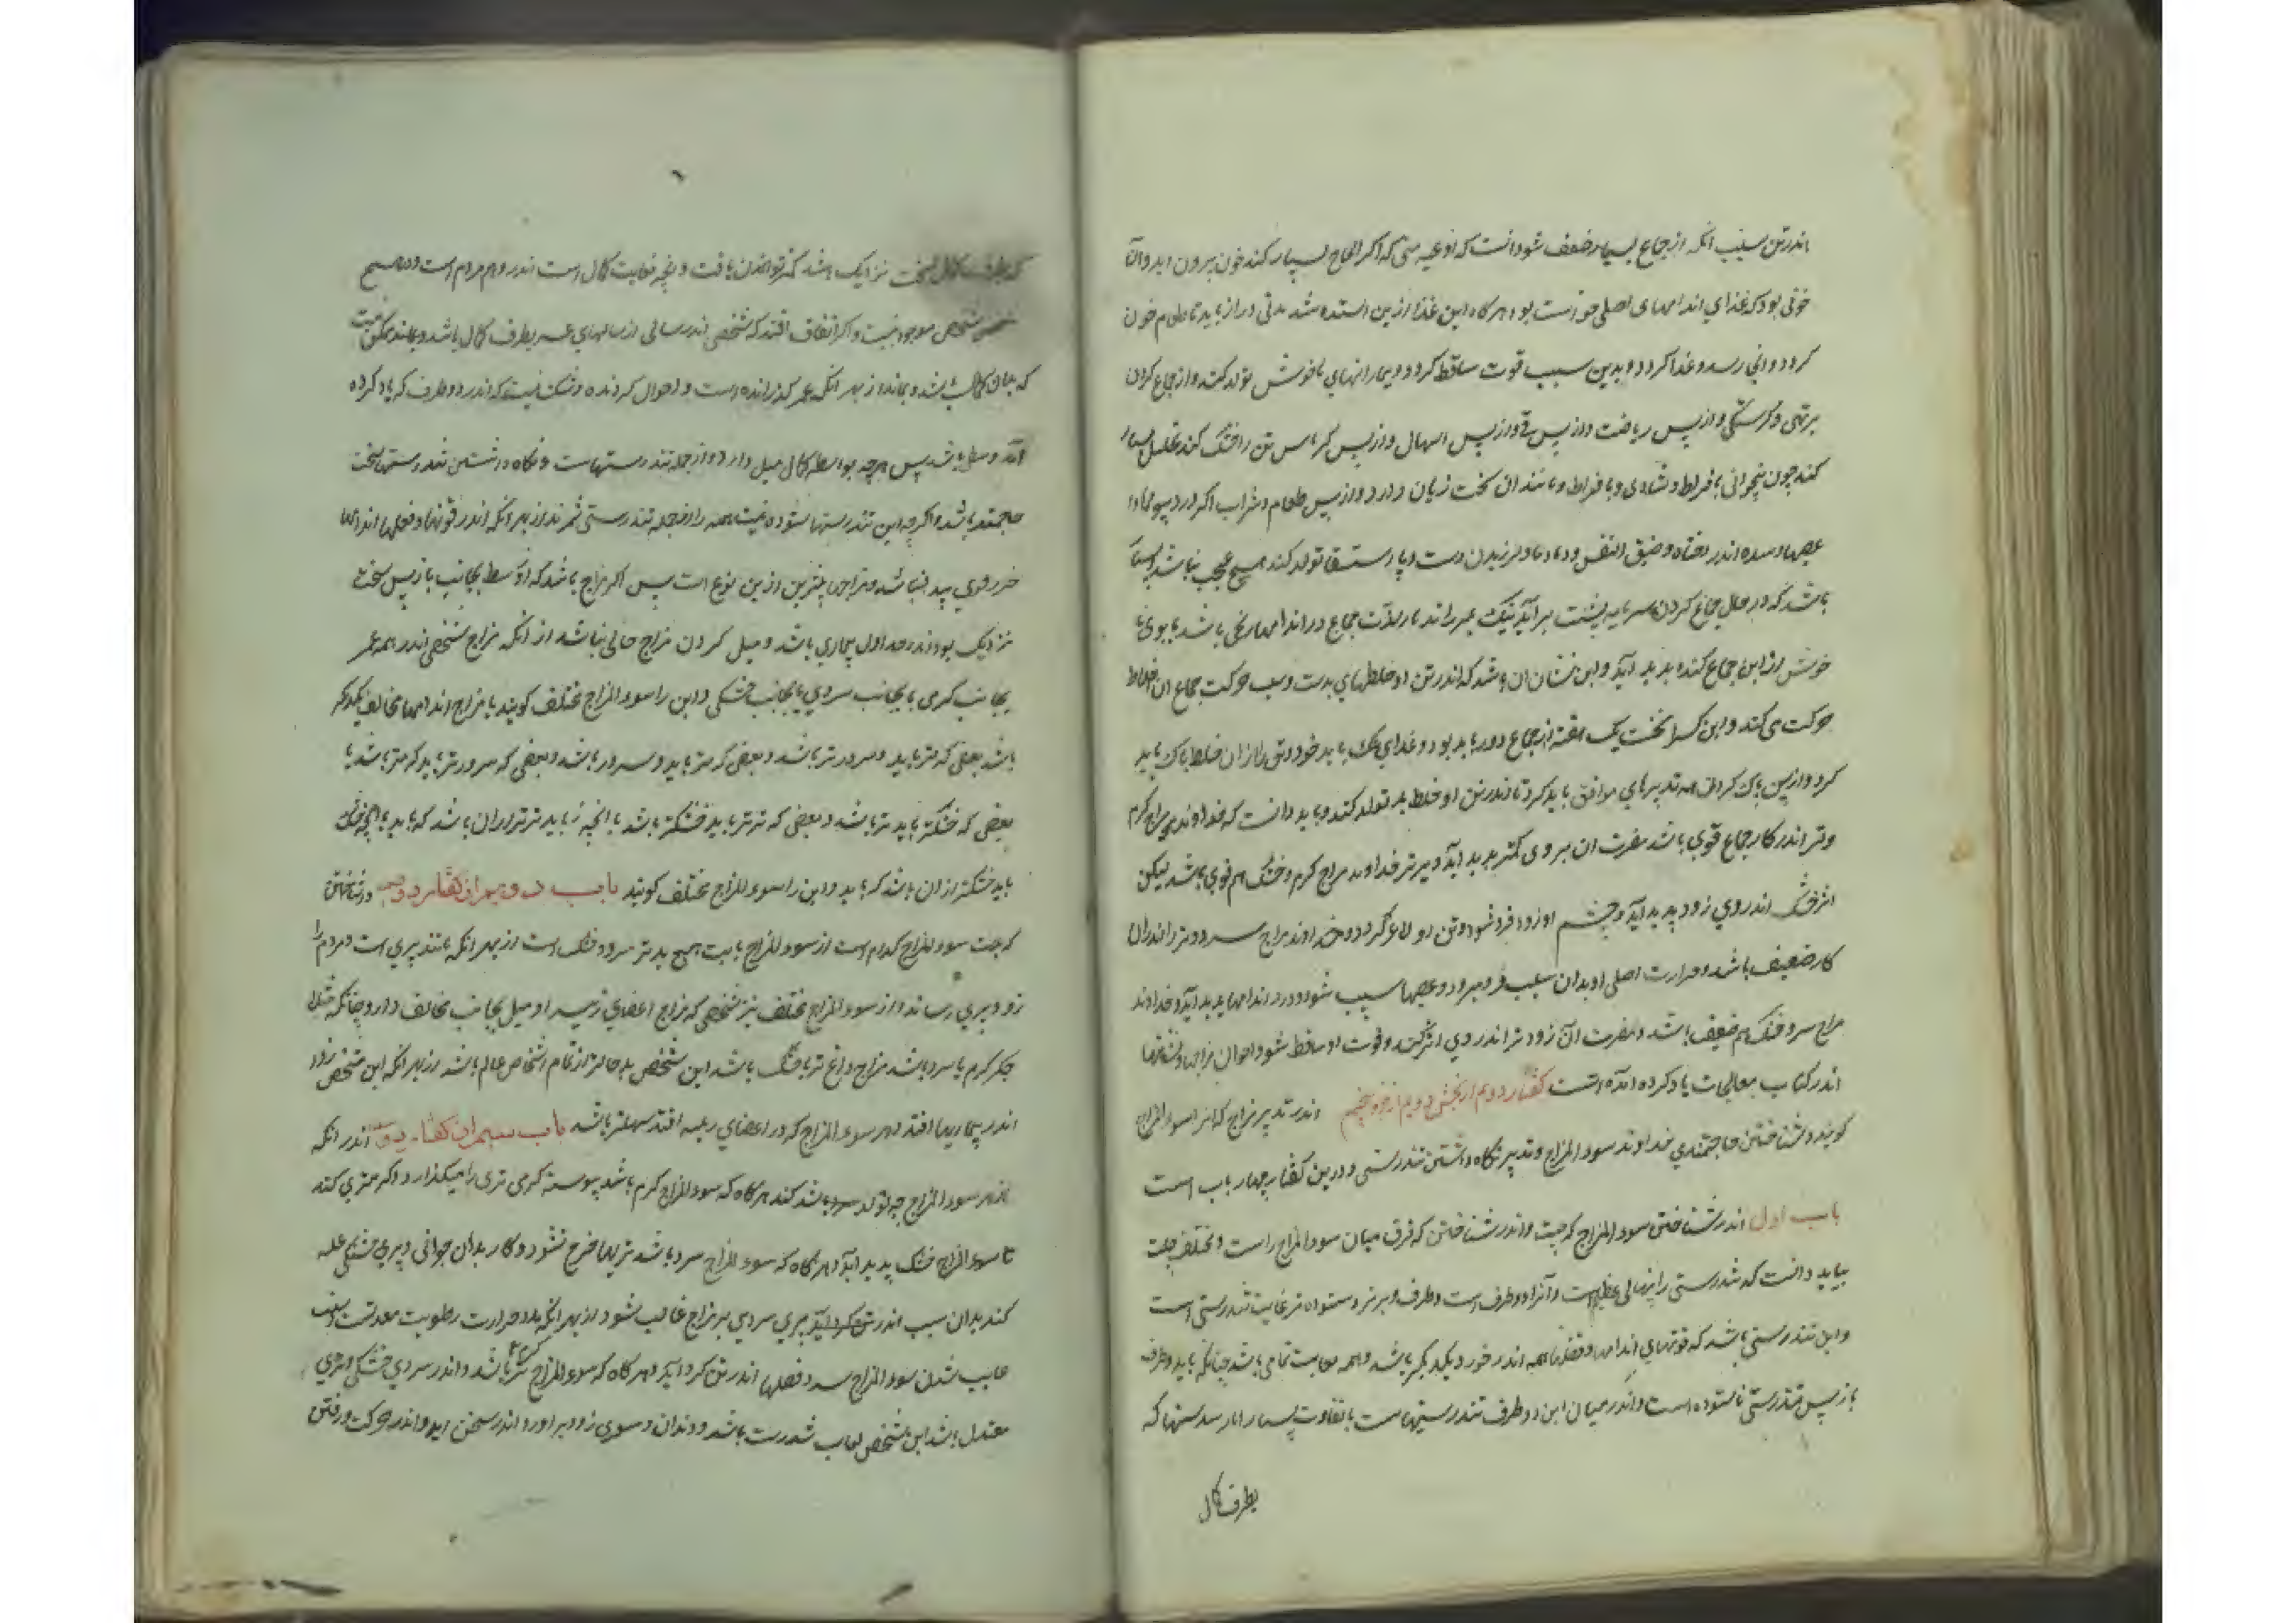 اندر تن سبب انکه از جماع بسیار ضعف شود انست که اوعیه منی که اکر الحاح بسیار کند خون بیرون اید و آن
خونی بود که غذای اندامهای اصلی خواست بود هرکاه این غذا ازین استده شد مدتی دراز باید تا طعام خون
کردد و انجا رسد و غذا کردد و بدین سبب قوت ساقط کردد و بیماریهای ناخوش تولد کند و از جماع کردن
بر تهی و کرسنکی و از پس ریاضت و از پس قی و از پس اسهال و از پس تن را خشک کند تحلیل بسیار
کند چون بیخوابی بافراط و شادی بافراط و مانند ان سخت زیان دارد و از پس طعام و شراب اکر در
عصبها و سده اندر افتاد و ضیق النفس و لرزیدن دست و پا و استسقا تولد کند هیچ عجب نباشد
باشد که در حال جماع کردن سرما به پشت بر آید نیک لذت جماع در اندامها رنجی باشد یا بوی نا
خوش از این جماع کننده پدید آید و این نشان ان باشد که اندر تن او خلطهای بدست و سبب حرکت جماع ان اخلاط
حرکت می کند و این کس را نخست یک هفته از جماع دور باید بود و غذای سبک باید خورد و تن را از ان خلط پاک باید
کرد و از پس پاک کردن همه تدبیرهای موافق باید کرد تا اندر تن او خلط بد تولد نکند و باید دانست که خداوند مزاج کرم
و تر اندر کار جماع قوی باشد مضرت ان بر وی کمتر پدید اید و بیرتر خداوند مزاج کرم و خشک هم قوی باشد لیکن
اثر خشک اندر وی زود پدید آید و چشم او زود فرو شود و تن او لاغر کردد و خداوند مزاج سرد و تر اندر ان
کار ضعیف باشد و حرارت اصلی او بدان سبب فرو میرد و عصبها سبب شود و درد اندامها پدید آید و خداوند
مزاج سرد و خشک هم ضعیف باشد و مضرت آن زودتر اندر وی اثر کند و قوت او ساقط شود احوال مزاجها و نشانها
اندر کتاب معالجات یاد کرده آمده است کفتار دوم از بخش دویم از جزو پنجم اندر تدبیر مزاج که انرا سوء المزاج
کویند و شناختن حاجتمندی خداوند سوء المزاج و تدبیر نکاه داشتن تندرستی و درین کفتار چهار باب است
باب اول اندر شناختن سوء المزاج که چیست و اندر شناختن که فرق میان سوء المزاج راست و مختلف چیست
بباید دانست که تندرستی را پهنائی عظیم است و آنرا دو طرف است و طرف و برتر و ستوده تر غایت تندرستی است
و این تندرستی باشد که قوتهای اندامها و فعلها همه اندر خور یکدیکر باشد و همه بغایت تمامی باشد چنانکه باید و طرف
باز پس تندرستی نا ستوده است و اندر میان این دو طرف تندرستیهاست با تفاوت بسیار که
بطرف کمال
که بطرف کمال سخت نزدیک باشد کمتر توان یافت و انچه بغایت کمال است اندر وهم مردم است و در هیچ
شخص موجود نیست و اکر اتفاق افتد که شخصی اندر سالی از سالهای عمر بطرف کمال باشد و بماند ممکن نیست
که بدان کمال باشد و بماند از بهر انکه عمر کذرانده است و احوال کردنده و شک نیست که اندر دو طرف که یاد کرده
آمد وسطی باشد پس هرچه بواسطه کمال میل دارد و از جمله تندرستیهاست و نکاه داشتن تندرستیها سخت
حاجتمند باشد و اکرچه این تندرستیها ستوده نیست همه را از جمله تندرستی شمرند از بهر آنکه اندر قوتها و فعلهای اندامها
ضرر قوی پیدا نباشد و مزاجها بیشترین ازین نوع است پس اکر مزاج باشد که اوسط بجانب باز پس سخت
نزدیک بود اندر حد اول بیماری باشد و میل کردن مزاج خالی نباشد از آنکه مزاج شخصی اندر همه عمر
بجانب کرمی یا بجانب سردی یا بجانب خشکی و این را سوء المزاج مختلف کویند یا مزاج اندامها مخالف یکدیکر
باشد بعضی که کرمتر باید و سردتر باشد و بعضی که کرمتر باید و سردتر باشد و بعضی که سردتر باید کرمتر باشد یا
بعضی که خشکتر باید تر باشد و بعضی که تر تر باید خشکتر باشد یا انچه تر باید ترتر از ان باشد که باید یا انچه خشک
باید خشکتر از ان باشد که باید و این را سوء المزاج مختلف کویند باب دویم از کفتار دوم در شناختن
که چیست سوء المزاج کدام است از سوء المزاج ثابت هیچ بدتر سرد و خشک است از بهر انکه مانند پیری است و مردم را
زود بپیری رساند و از سوء المزاج مختلف نیز شخصی که مزاج اعضای رئیسه او میل بجانب مخالف دارد چنانکه مثلا
جکر کرم یا سرد باشد مزاج دماغ تر یا خشک باشد این شخص بدحالتر از تمام اشخاص عالم باشد از بهر انکه این شخص زود
اندر بیماریها افتد و هر سوء المزاج که در اعضای رئیسه افتد سهلتر باشد باب سیم از کفتار دوم اندر آنکه
از هر سوء المزاج چه تولد کند هرکاه که سوء المزاج کرم باشد پیوسته کرمی تری را میکذارد و اکرمتری کند
تا سوء المزاج خشک پدید آید و هرکاه که سوء المزاج سرد باشد تریها خرج نشود و کار بدان جوانی و پیری خشکی غلبه
کند بدان سبب اندر تن کرد آید پیری سردی بر مزاج غالب شود از بهر آنکه مدد حرارت رطوبت معدلست و سبب
غالب شدن سوء المزاج سرد فضلها اندر تن کرد آید و هرکاه که سوء المزاج تر باشد و اندر سردی خشکی و تری
معتدل باشد این شخص بغایت تندرست باشد و دندان و موی زود بر آورد اندر سخن اید و اندر حرکت و رفتن